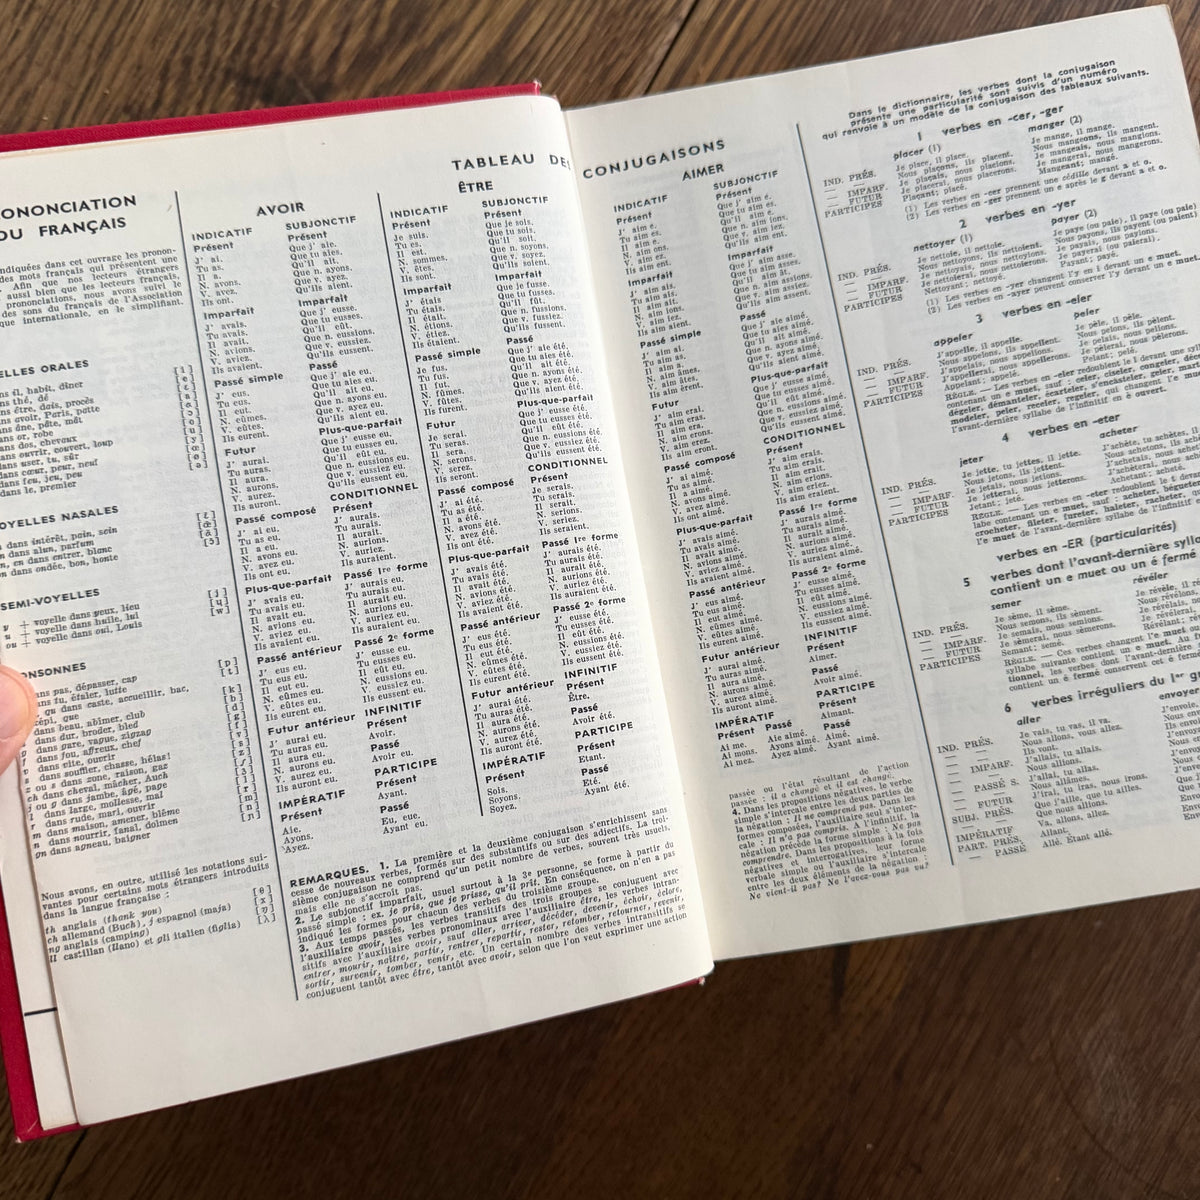 PRONONCIATION
DU FRANÇAIS
indiquées dans cet ouvrage les pronon-
des mots français qui présentent une
Afin que nos lecteurs étrangers
aussi bien que les lecteurs français,
prononciations, nous avons suivi le
des sons du français de l'Association
que internationale, en le simplifiant
ELLES ORALES
ns il, habit, dîner [i]
ns thé, dé [e]
ns être, dais, procès [ɛ]
ns avoir, Paris, patte [a]
ns âne, pâte, mât [ɑ]
ns or, robe [ɔ]
ns dos, chevaux [o]
ans ouvrir, couvert, loup [u]
ans user, tu, sûr [y]
ans cœur, peur, neuf [œ]
ans feu, jeu, peu [ø]
ans le, premier [ə]
OYELLES NASALES
dans intérêt, pain, sein [ɛ̃]
dans alun, parfum [œ̃]
en dans entrer, blanc [ɑ̃]
n dans ondée, bon, honte [ɔ̃]
SEMI-VOYELLES
y + voyelle dans yeux, lieu [j]
u + voyelle dans huile, lui [ɥ]
ou + voyelle dans oui, Louis [w]
ONSONNES
ans pas, dépasser, cap [p]
ans fu, étaler, lutte [t]
qu dans caste, accueillir, bac,
képi, que [k]
dans beau, abîmer, club [b]
dans dur, broder, bled [d]
dans gare, vague, zigzag [g]
dans fou, affreux, chef [f]
dans vite, ouvrir [v]
dans souffler, chasse, hélas! [s]
ou s dans zone, raison, gaz [z]
ch dans cheval, mâcher, Auch [ʃ]
j ou g dans jambe, âgé, page [ʒ]
l dans large, mollesse, mal [l]
r dans rude, mari, ouvrir [r]
m dans maison, amener, blême [m]
n dans nourrir, fanal, dolmen [n]
gn dans agneau, baigner [ɲ]
Nous avons, en outre, utilisé les notations sui-
vantes pour certains mots étrangers introduits
dans la langue française :
th anglais (thank you) [θ]
ch allemand (Buch), j espagnol (maja) [x]
ng anglais (camping) [ŋ]
ll castillan (llano) et gli italien (figlia) [ʎ]
TABLEAU DES CONJUGAISONS
AVOIR
INDICATIF
Présent
J' ai.
Tu as.
Il a.
N. avons.
V. avez.
Ils ont.
Imparfait
J' avais.
Tu avais.
Il avait.
N. avions.
V. aviez.
Ils avaient.
Passé simple
J' eus.
Tu eus.
Il eut.
N. eûmes.
V. eûtes.
Ils eurent.
Futur
J' aurai.
Tu auras.
Il aura.
N. aurons.
V. aurez.
Ils auront.
Passé composé
J' ai eu.
Tu as eu.
Il a eu.
N. avons eu.
V. avez eu.
Ils ont eu.
Plus-que-parfait
J' avais eu.
Tu avais eu.
Il avait eu.
N. avions eu.
V. aviez eu.
Ils avaient eu.
Passé antérieur
J' eus eu.
Tu eus eu.
Il eut eu.
N. eûmes eu.
V. eûtes eu.
Ils eurent eu.
Futur antérieur
J' aurai eu.
Tu auras eu.
Il aura eu.
N. aurons eu.
V. aurez eu.
Ils auront eu.
IMPÉRATIF
Présent
Aie.
Ayons.
Ayez.
SUBJONCTIF
Présent
Que j' aie.
Que tu aies.
Qu'il ait.
Que n. ayons.
Que v. ayez.
Qu'ils aient.
Imparfait
Que j' eusse.
Que tu eusses.
Qu'il eût.
Que n. eussions.
Que v. eussiez.
Qu'ils eussent.
Passé
Que j' aie eu.
Que tu aies eu.
Qu'il ait eu.
Que n. ayons eu.
Que v. ayez eu.
Qu'ils aient eu.
Plus-que-parfait
Que j' eusse eu.
Que tu eusses eu.
Qu'il eût eu.
Que n. eussions eu.
Que v. eussiez eu.
Qu'ils eussent eu.
CONDITIONNEL
Présent
J' aurais.
Tu aurais.
Il aurait.
N. aurions.
V. auriez.
Ils auraient.
Passé 1re forme
J' aurais eu.
Tu aurais eu.
Il aurait eu.
N. aurions eu.
V. auriez eu.
Ils auraient eu.
Passé 2e forme
J' eusse eu.
Tu eusses eu.
Il eût eu.
N. eussions eu.
V. eussiez eu.
Ils eussent eu.
INFINITIF
Présent
Avoir.
Passé
Avoir eu.
PARTICIPE
Présent
Ayant.
Passé
Eu, eue.
Ayant eu.
ÊTRE
INDICATIF
Présent
Je suis.
Tu es.
Il est.
N. sommes.
V. êtes.
Ils sont.
Imparfait
J' étais
Tu étais.
Il était.
N. étions.
V. étiez.
Ils étaient.
Passé simple
Je fus.
Tu fus.
Il fut.
N. fûmes.
V. fûtes.
Ils furent.
Futur
Je serai.
Tu seras.
Il sera.
N. serons.
V. serez.
Ils seront.
Passé composé
J' ai été.
Tu as été.
Il a été.
N. avons été.
V. avez été.
Ils ont été.
Plus-que-parfait
J' avais été.
Tu avais été.
Il avait été.
N. avions été.
V. aviez été.
Ils avaient été.
Passé antérieur
J' eus été.
Tu eus été.
Il eut été.
N. eûmes été.
V. eûtes été.
Ils eurent été.
Futur antérieur
J' aurai été.
Tu auras été.
Il aura été.
N. aurons été.
V. aurez été.
Ils auront été.
IMPÉRATIF
Présent
Sois.
Soyons.
Soyez.
SUBJONCTIF
Présent
Que je sois.
Que tu sois.
Qu'il soit.
Que n. soyons.
Que v. soyez.
Qu'ils soient.
Imparfait
Que je fusse.
Que tu fusses.
Qu'il fût.
Que n. fussions.
Que v. fussiez.
Qu'ils fussent.
Passé
Que j' aie été.
Que tu aies été.
Qu'il ait été.
Que n. ayons été.
Que v. ayez été.
Qu'ils aient été.
Plus-que-parfait
Que j' eusse été.
Que tu eusses été.
Qu'il eût été.
Que n. eussions été.
Que v. eussiez été.
Qu'ils eussent été.
CONDITIONNEL
Présent
Je serais.
Tu serais.
Il serait.
N. serions.
V. seriez.
Ils seraient.
Passé 1re forme
J' aurais été.
Tu aurais été.
Il aurait été.
N. aurions été.
V. auriez été.
Ils auraient été.
Passé 2e forme
J' eusse été.
Tu eusses été.
Il eût été.
N. eussions été.
V. eussiez été.
Ils eussent été.
INFINITIF
Présent
Être.
Passé
Avoir été.
PARTICIPE
Présent
Etant.
Passé
Eté.
Ayant été.
REMARQUES. 1. La première et la deuxième conjugaison s'enrichissent sans
cesse de nouveaux verbes, formés sur des substantifs ou sur des adjectifs. La troi-
sième conjugaison ne comprend qu'un petit nombre de verbes, souvent très usuels,
mais elle ne s'accroît pas.
2. Le subjonctif imparfait, usuel surtout à la 3e personne, se forme à partir du
passé simple : ex. je pris, que je prisse, qu'il prît. En conséquence, on n'en a pas
indiqué les formes pour chacun des verbes du troisième groupe.
3. Aux temps passés, les verbes transitifs des trois groupes se conjuguent avec
l'auxiliaire avoir, les verbes pronominaux avec l'auxiliaire être, les verbes intran-
sitifs avec l'auxiliaire avoir, sauf aller, arriver, décéder, devenir, échoir, éclore,
entrer, mourir, naître, partir, rentrer, repartir, rester, retomber, retourner, revenir,
sortir, survenir, tomber, venir, etc. Un certain nombre des verbes intransitifs se
conjuguent tantôt avec être, tantôt avec avoir, selon que l'on veut exprimer une action
AIMER
INDICATIF
Présent
J' aim e.
Tu aim es.
Il aim e.
N. aim ons.
V. aim ez.
Ils aim ent.
Imparfait
J' aim ais.
Tu aim ais.
Il aim ait.
N. aim ions.
V. aim iez.
Ils aim aient.
Passé simple
J' aim ai.
Tu aim as.
Il aim a.
N. aim âmes.
V. aim âtes.
Ils aim èrent.
Futur
J' aim erai.
Tu aim eras.
Il aim era.
N. aim erons.
V. aim erez.
Ils aim eront.
Passé composé
J' ai aimé.
Tu as aimé.
Il a aimé.
N. avons aimé.
V. avez aimé.
Ils ont aimé.
Plus-que-parfait
J' avais aimé.
Tu avais aimé.
Il avait aimé.
N. avions aimé.
V. aviez aimé.
Ils avaient aimé.
Passé antérieur
J' eus aimé.
Tu eus aimé.
Il eut aimé.
N. eûmes aimé.
V. eûtes aimé.
Ils eurent aimé.
Futur antérieur
J' aurai aimé.
Tu auras aimé.
Il aura aimé.
N. aurons aimé.
V. aurez aimé.
Ils auront aimé.
IMPÉRATIF
Présent Passé
Ai me. Aie aimé.
Ai mons. Ayons aimé.
Ai mez. Ayez aimé.
SUBJONCTIF
Présent
Que j' aim e.
Que tu aim es.
Qu'il aim e.
Que n. aim ions.
Que v. aim iez.
Qu'ils aim ent.
Imparfait
Que j' aim asse.
Que tu aim asses.
Qu'il aim ât.
Que n. aim assions.
Que v. aim assiez.
Qu'ils aim assent.
Passé
Que j' aie aimé.
Que tu aies aimé.
Qu'il ait aimé.
Que n. ayons aimé.
Que v. ayez aimé.
Qu'ils aient aimé.
Plus-que-parfait
Que j' eusse aimé.
Que tu eusses aimé.
Qu'il eût aimé.
Que n. eussions aimé.
Que v. eussiez aimé.
Qu'ils eussent aimé.
CONDITIONNEL
Présent
J' aim erais.
Tu aim erais.
Il aim erait.
N. aim erions.
V. aim eriez.
Ils aim eraient.
Passé 1re forme
J' aurais aimé.
Tu aurais aimé.
Il aurait aimé.
N. aurions aimé.
V. auriez aimé.
Ils auraient aimé.
Passé 2e forme
J' eusse aimé.
Tu eusses aimé.
Il eût aimé.
N. eussions aimé.
V. eussiez aimé.
Ils eussent aimé.
INFINITIF
Présent
Aimer.
Passé
Avoir aimé.
PARTICIPE
Présent
Aimant.
Passé
Aimé.
Ayant aimé.
passée ou l'état résultant de l'action
passée : il a changé et il est changé.
4. Dans les propositions négatives, le verbe
simple s'intercale entre les deux parties de
la négation : Il ne comprend pas. Dans les
formes composées, l'auxiliaire seul s'inter-
cale : Il n'a pas compris. A l'infinitif, la
négation précède la forme simple : Ne pas
comprendre. Dans les propositions à la fois
négatives et interrogatives, leur forme
verbale simple ou l'auxiliaire s'intercale
entre les deux éléments de la négation :
Ne vient-il pas? Ne l'avez-vous pas vu?
Dans le dictionnaire, les verbes dont la conjugaison
présente une particularité sont suivis d'un numéro
qui renvoie à un modèle de la conjugaison des tableaux suivants.
1 verbes en -cer, -ger
placer (1) manger (2)
IND. PRÉS. Je place, il place. Je mange, il mange.
Nous plaçons, ils placent. Nous mangeons, ils mangent.
— IMPARF. Je plaçais, nous placions. Je mangeais, nous mangions.
— FUTUR Je placerai, nous placerons. Je mangerai, nous mangerons.
PARTICIPES Plaçant; placé. Mangeant; mangé.
(1) Les verbes en -cer prennent une cédille devant a et o.
(2) Les verbes en -ger prennent un e après le g devant a et o.
2 verbes en -yer
nettoyer (1) payer (2)
IND. PRÉS. Je nettoie, il nettoie. Je paye (ou paie), il paye (ou paie)
Nous nettoyons, ils nettoient. Nous payons, ils payent (ou paient)
— IMPARF. Je nettoyais, nous nettoyions. Je payais, nous payions.
— FUTUR Je nettoierai, nous nettoierons. Je payerai (ou paierai).
PARTICIPES Nettoyant; nettoyé. Payant; payé.
(1) Les verbes en -yer changent l'y en i devant un e muet.
(2) Les verbes en -ayer peuvent conserver l'y devant un e muet.
3 verbes en -eler
appeler peler
IND. PRÉS. J'appelle, il appelle. Je pèle, il pèle.
Nous appelons, ils appellent. Nous pelons, ils pèlent.
— IMPARF. J'appelais, nous appelions. Je pelais, nous pelions.
— FUTUR J'appellerai, nous appellerons. Je pèlerai, nous pèlerons
PARTICIPES Appelant; appelé. Pelant; pelé.
RÈGLE. — Les verbes en -eler redoublent le l devant une syll
contenant un e muet, sauf : celer, ciseler, congeler, déce
dégeler, démanteler, écarteler, s'encasteler, geler, mart
modeler, peler, receler, regeler, qui changent l'e mue
l'avant-dernière syllabe de l'infinitif en è ouvert.
4 verbes en -eter
jeter acheter
IND. PRÉS. Je jette, tu jettes, il jette. J'achète, tu achètes, il
Nous jetons, ils jettent. Nous achetons, ils ach
— IMPARF. Je jetais, nous jetions. J'achetais, nous achet
— FUTUR Je jetterai, nous jetterons. J'achèterai, nous achèt
PARTICIPES Jetant; jeté. Achetant; acheté.
RÈGLE. — Les verbes en -eter redoublent le t devan
labe contenant un e muet, sauf : acheter, bégueter
crocheter, fileter, fureter, haleter, racheter, q
l'e muet de l'avant-dernière syllabe de l'infinitif en
verbes en -ER (particularités)
5 verbes dont l'avant-dernière sylla
contient un e muet ou un é fermé
semer révéler
IND. PRÉS. Je sème, il sème. Je révèle, il rév
Nous semons, ils sèment. Nous révélons,
— IMPARF. Je semais, nous semions. Je révélais, n
— FUTUR Je sèmerai, nous sèmerons. Je révélerai,
PARTICIPES Semant; semé. Révélant; ré
RÈGLE. — Ces verbes changent l'e muet ou
syllabe suivante contient un e muet. Au
tionnel, les verbes dont l'avant-dernière
contient un é fermé conservent cet é fermé
6 verbes irréguliers du 1er gr
aller envoyer
IND. PRÉS. Je vais, tu vas, il va. J'envoie,
Nous allons, vous allez. Nous env
Ils vont.
— IMPARF. J'allais, tu allais.
Nous allions.
— PASSÉ S. J'allai, tu allas.
Nous allâmes.
— FUTUR J'irai, tu iras, nous irons.
SUBJ. PRÉS. Que j'aille, que tu ailles.
Que nous allions.
IMPÉRATIF Va, allons, allez.
PART. PRÉS. Allant.
— PASSÉ Allé. Étant allé.